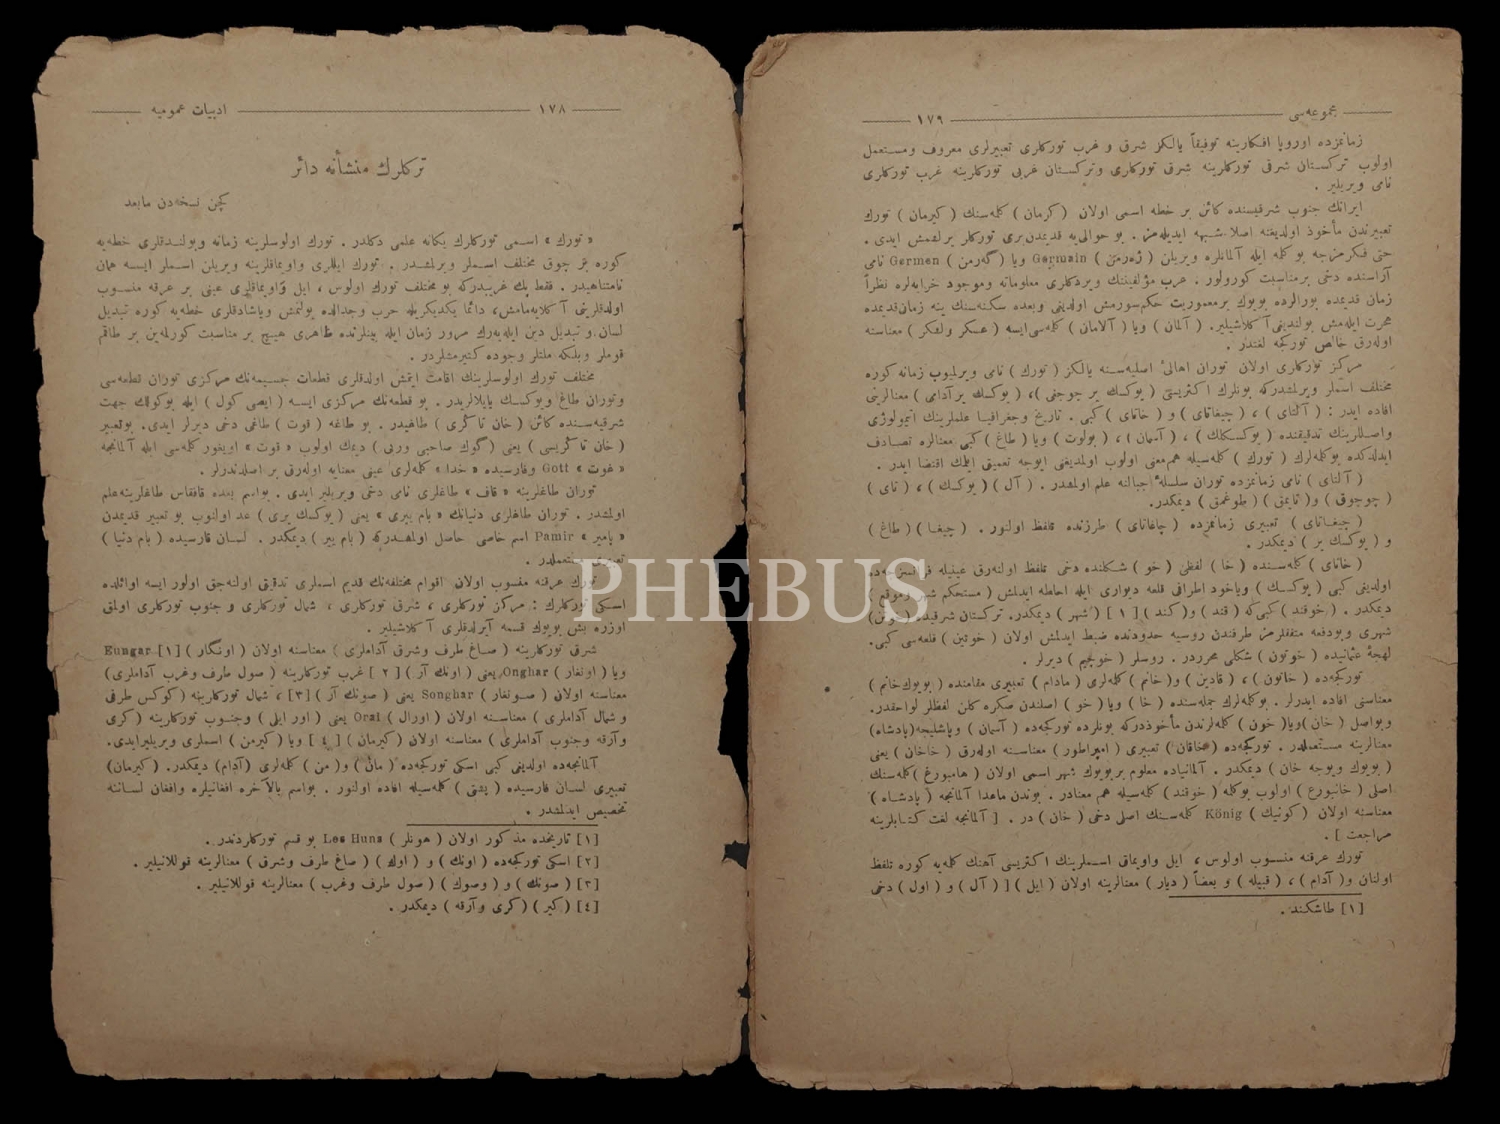 ادبيات عموميه
١٧٨
تركلرك منشأنه دائر
كچن نسخه‌دن مابعد
« تورك » اسمی توركلرك يكانه علمی دكلدر . تورك اولوسلرينه زمانه وبولندقلری خطه‌يه
كوره بر چوق مختلف اسملر ويرلمشدر . تورك ايللری واويماقلرينه ويريلن اسملر ايسه همان
نامتناهيدر . فقط پك غريبدركه بو مختلف تورك اولوس ، ايل واويماقلری عينی بر عرقه منسوب
اولدقلرينی آكلايه‌مامش، دائما يكديكريله حرب وجدالده بولنمش وياشادقلری خطه‌يه كوره تبديل
لسان و تبديل دين ايله‌يه‌رك مرور زمان ايله بينلرنده ظاهری هيچ بر مناسبت كورلمه‌ين بر طاقم
قوملر وبلكه ملتلر وجوده كتيرمشلردر .
مختلف تورك اولوسلرينك اقامت ايتمش اولدقلری قطعات جسيمه‌نك مركزی توران قطعه‌سی
وتوران طاغ وبوكسك يايلالريدر . بو قطعه‌نك مركزی ايسه ( ايصی كول ) ايله بوكولك جهت
شرقيه‌سنده كائن ( خان تاكری ) طاغيدر . بو طاغه ( قوت ) طاغی دخی ديرلر ايدی. بوتعبير
( خان تاكريسی ) يعنی ( گوك صاحبی وربی ) ديمك اولوب « قوت » اويغور كلمه‌سی ايله آلمانجه
« غوت » Gott وفارسيده « خدا » كلمه‌لری عينی معنايه اوله‌رق بر اصلدندرلر .
توران طاغلرينه « قاف » طاغلری نامی دخی ويريلير ايدی . بواسم بعده قافقاس طاغلرينه‌علم
اولمشدر . توران طاغلری دنيانك « بام ييری » يعنی ( يوكسك يری ) عد اولنوب بو تعبير قديمدن
« پامير » Pamir اسم خاصی حاصل اولمشدركه ( بام يير ) ديمكدر . لسان فارسيده ( بام دنيا )
تورك عرقنه منسوب اولان اقوام مختلفه‌نك قديم اسملری تدقيق اولنه‌جق اولور ايسه اوائلده
اسكی توركلرك : مركز توركلری ، شرق توركلری ، شمال توركلری و جنوب توركلری اولمق
اوزره بش بويوك قسمه آيرلدقلری آكلاشيلير .
شرقی توركلرينه ( صاغ طرف وشرق آداملری ) معناسنه اولان ( اونگار ) [١] Eungar
ويا ( اونغار ) Onghar يعنی ( اونك آر ) [ ٢ ] غرب توركلرينه ( صول طرف وغرب آداملری )
معناسنه اولان ( صونغار ) Songhar يعنی ( صونك آر ) [٣] ، شمال توركلرينه ( كوكس طرقی
و شمال آداملری ) معناسنه اولان ( اورال ) Oral يعنی ( اور ايلی ) وجنوب توركلرينه ( كری
وآرقه وجنوب آداملری ) معناسنه اولان ( كيرمان ) [ ٤ ] ويا ( كيرمن ) اسملری ويريليرايدی.
آلمانجه‌ده اولديغی كبی اسكی توركجه‌ده ( مان ) و( من ) كلمه‌لری ( آدام ) ديمكدر. ( كيرمان )
تعبيری لسان فارسيده ( پشتی ) كلمه‌سيله افاده اولنور . بواسم بالآخره افغانيلره وافغان لساننه
تخصيص ايدلمشدر .
[١] تاريخده مذكور اولان ( هونلر ) Les Huns بو قسم توركلردندر .
[٢] اسكی توركجه‌ده ( اونك ) و ( اوك ) ( صاغ طرف وشرق ) معنالرينه قوللانيلير .
[٣] ( صونك ) و ( وصوك ) ( صول طرف وغرب ) معنالرينه قوللانيلير .
[٤] ( كير ) ( كری وآرقه ) ديمكدر .
مجموعه‌سی
١٧٩
زمانمزده اوروپا افكارينه توفيقاً يالكز شرق و غرب توركلری تعبيرلری معروف ومستعمل
اولوب تركستان شرقی توركلرينه شرقی توركلری وتركستان غربی توركلرينه غرب توركلری
نامی ويريلير .
ايرانك جنوب شرقيسنده كائن بر خطه اسمی اولان ( كرمان ) كلمه‌سنك ( كيرمان ) تورك
تعبيرندن مأخوذ اولديغنه اصلا شبهه ايديله‌مز . بو حوالی‌يه قديمدن‌بری توركلر يرلشمش ايدی .
حتی فكرمزجه بو كلمه ايله آلمانلره ويريلن ( ژه‌رمن ) Germain ويا ( گه‌رمن ) Germen نامی
آراسنده دخی برمناسبت كورولور . عرب مؤلفيننك ويردكلری معلوماته وموجود خرابه‌لره نظراً
زمان قديمده بورالرده بويوك برمعموريت حكم‌سورمش اولديغی وبعده سكنه‌سنك ينه زمان‌قديمده
هجرت ايله‌مش بولنديغی آكلاشيلير. ( آلمان ) ويا ( آلامان ) كلمه‌سی‌ايسه ( عسكر ولشكر ) معناسنه
اوله‌رق خالص توركجه لغتدر .
مركز توركلری اولان توران اهالئ اصليه‌سنه يالكز ( تورك ) نامی ويريلوب زمانه كوره
مختلف اسملر ويرلمشدركه بونلرك اكثريسی ( يوكسك ير چوجغی )، ( يوكسك يرآدامی ) معنالرينی
افاده ايدر : ( آلتای ) ، ( جيغاتای ) و ( خاتای ) كبی . تاريخ وجغرافيا علملرينك اتيمولوژی
واصللرينك تدقيقنده ( يوكسكلك ) ، ( آسمان ) ، ( بولوت ) ويا ( طاغ ) كبی معنالره تصادف
ايدلدكده بوكلمه‌لرك ( تورك ) كلمه‌سيله هم‌معنی اولوب اولمديغنی ايوجه تعميق ايتمك اقتضا ايدر .
( آلتای ) نامی زمانمزده توران سلسلۀ جبالنه علم اولمشدر . ( آل ) ( يوكسك ) ، ( تای )
( چوجوق ) و( تايمق ) ( طوغمق ) ديمكدر.
( جيغاتای ) تعبيری زمانمزده ( چاغاتای ) طرزنده تلفظ اولنور . ( جيغا ) ( طاغ )
و ( يوكسك ير ) ديمكدر .
( خاتای ) كلمه‌سنده ( خا ) لفظی ( خو ) شكلنده دخی تلفظ اولنه‌رق عينيله فرانسزجه‌ده
اولديغی كبی ( يوكسك ) وياخود اطرافی قلعه ديواری ايله احاطه ايدلمش ( مستحكم شهر وموقع )
ديمكدر . ( خوقند ) كبی‌كه ( قند ) و( كند ) [ ١ ] ( شهر ) ديمكدر. تركستان شرقيده ( خوتن )
شهری وبودفعه متفقلرمز طرفندن روسيه حدودنده ضبط ايدلمش اولان ( خوتين ) قلعه‌سی كبی.
لهجۀ عثمانيده ( خوتون ) شكلی محرردر . روسلر ( خوجيم ) ديرلر .
توركجه‌ده ( خاتون ) ، ( قادين ) و( خانم ) كلمه‌لری ( مادام ) تعبيری مقامنده ( بويوك‌خانم )
معناسنی افاده ايدرلر . بوكلمه‌لرك جمله‌سنده ( خا ) ويا ( خو ) اصلندن صكره كلن لفظلر لواحقدر.
وبواصل ( خان ) ويا( خون ) كلمه‌لرندن مأخوذدركه بونلرده توركجه‌ده ( آسمان ) وپاشليجه( پادشاه )
معنالرينه مستعملدر . توركجه‌ده ( خاقان ) تعبيری ( امپراطور ) معناسنه اوله‌رق ( خاخان ) يعنی
( بويوك ويوجه خان ) ديمكدر . آلمانياده معلوم بربويوك شهر اسمی اولان ( هامبورغ ) كلمه‌سنك
اصلی ( خانبورغ ) اولوب بوكلمه ( خوقند ) كلمه‌سيله هم معنادر . بوندن ماعدا آلمانجه ( پادشاه )
معناسنه اولان ( كونيك ) König كلمه‌سنك اصلی دخی ( خان ) در . [ آلمانجه لغت كتابلرينه
مراجعت ] .
تورك عرقنه منسوب اولوس ، ايل واويماق اسملرينك اكثريسی آهنك كلمه‌يه كوره تلفظ
اولنان و( آدام ) ، ( قبيله ) و بعضاً ( ديار ) معنالرينه اولان ( ايل ) [ ( آل ) و ( اول ) دخی
[١] طاشكند .